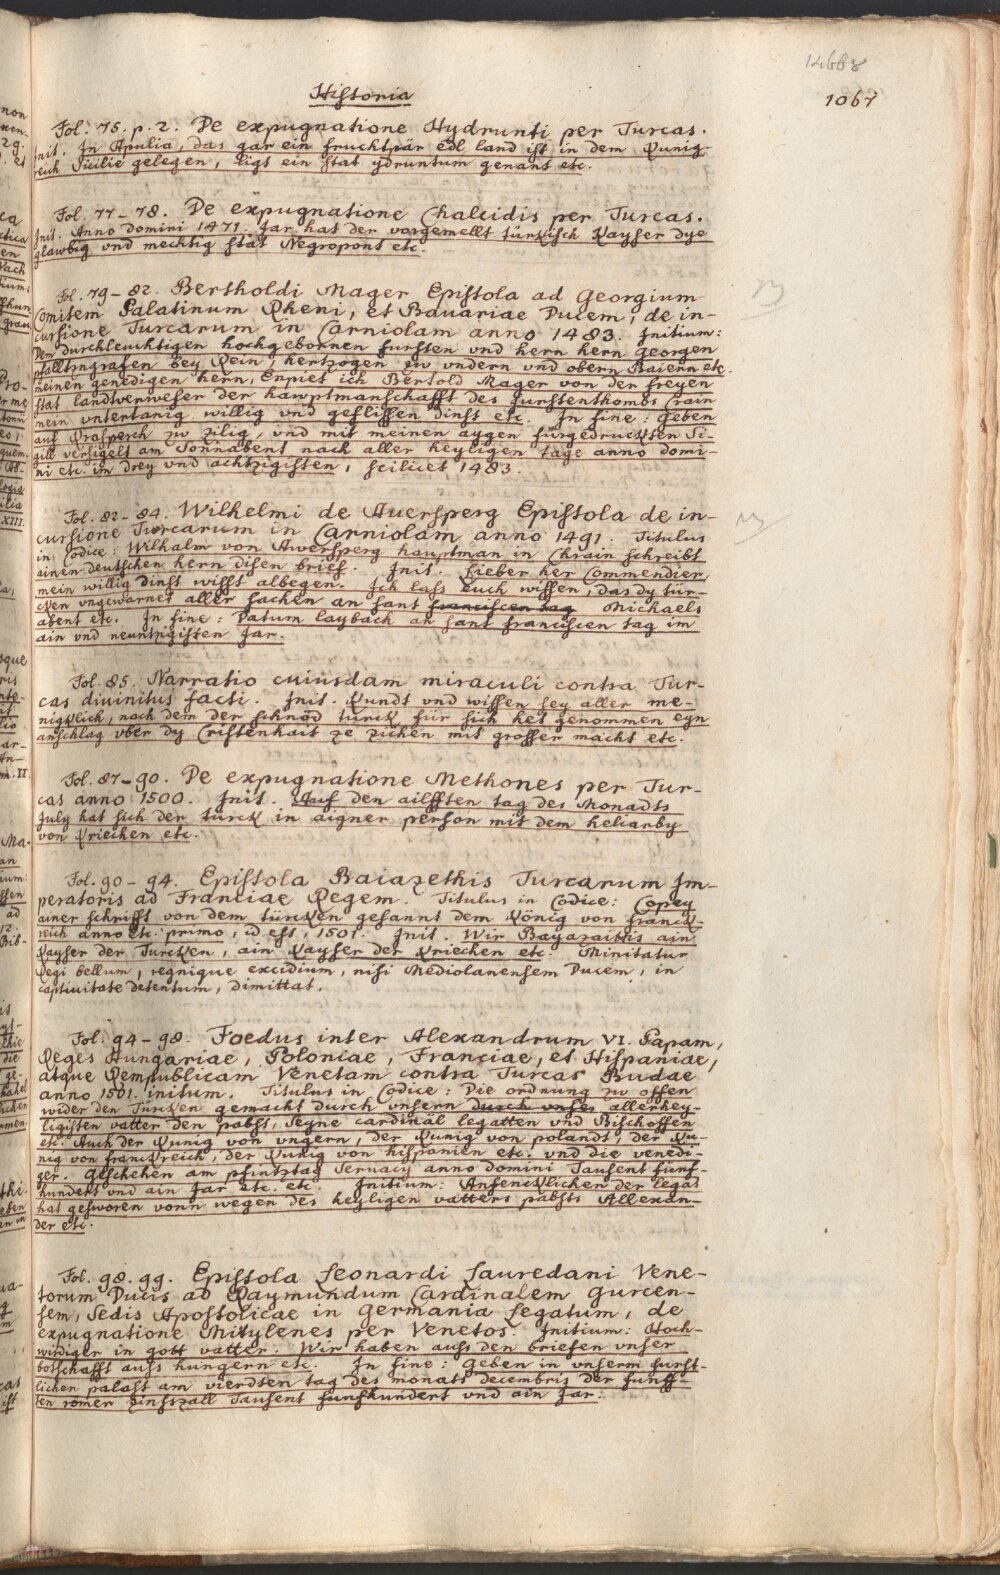 Historia
1067
Fol. 75. p. 2. De expugnatione Hydrunti per Turcas.
Init. In Apulia, das gar ein fruchtpär edl land ist in dem Kunig-
reich Sicilie gelegen, ligt ein stat ydruntum genant etc.
Fol. 77-78. De expugnatione Chalcidis per Turcas.
Init. Anno domini 1471. Jar hat der vorgemellt türkisch Kayser dye
glawbig vnd mechtig stat Negropont etc.
Fol. 79-82. Bertholdi Mager Epistola ad Georgium
Comitem Palatinum Rheni, et Bavariae Ducem, de in-
cursione Turcarum in Carniolam anno 1483. Initium:
Dem durchleuchtigen hochgebornen fursten vnd hern hern Georgen
pfalltzngrafen bey Rein hertzogen zw vndern vnd obern Baiern etc.
meinen genedigen hern, Enpiet ich Bertold Mager von der freyen
stat landtverweser der hawptmanschafft des furstenthombs Crain
mein vntertanig willig vnd geflissen dinst etc. In fine: Geben
auf Krasperch zw zilig, vnd mit meinen aygen fürgedruckhten Si-
gill versigelt am Sonnabent nach aller heyligen tage anno domi-
ni etc. im drey vnd achtzigisten, scilicet 1483.
Fol. 82-84. Wilhelmi de Auersperg Epistola de in-
cursione Turcarum in Carniolam anno 1491. Titulus
in Codice: Wilhalm von Awersperg hauptman in Chrain schreibt
ainen deutschen hern disen brief. Init. Lieber her Commendier,
mein willig dinst wisst albegen. Ich lass Euch wissen, das dy tur-
cken vngewarnet aller sachen an sant franciscen tag Michaels
abent etc. In fine: Datum laybach an sant franciscen tag im
ain vnd neuntzigisten Jar.
Fol. 85. Narratio cuiusdam miraculi contra Tur-
cas divinitus facti. Init. Kundt vnd wissen sey aller me-
nigklich, nach dem der schnöd türck für sich het genommen eyn
anschlag vber dy Cristenhait ze ziehen mit grosser macht etc.
Fol. 87-90. De expugnatione Methones per Tur-
cas anno 1500. Init. Auf den ailfften tag des Monadts
July hat sich der türck in aigner person mit dem beliarby
von Kriechen etc.
Fol. 90-94. Epistola Baiazethis Turcarum Im-
peratoris ad Franciae Regem. Titulus in Codice: Copey
ainer schrifft von dem türcken gesannt dem König von franck-
reich anno etc. primo, id est, 1501. Init. Wir Bayazaittis ain
Kayser der Turcken, ain Kayser der Kriechen etc. Minitatur
Regi bellum, regnique excidium, nisi Mediolanensem Ducem, in
captiuitate detentum, dimittat.
Fol. 94-98. Foedus inter Alexandrum VI. Papam,
Reges Hungariae, Poloniae, Franciae, et Hispaniae,
atque Rempublicam Venetam contra Turcas Budae
anno 1501. initum. Titulus in Codice: Die ordnung zu offen
wider den Türcken gemacht durch vnsern durch vnser allerhey-
ligisten vatter den pabst, seyne cardinäl legatten vnd Bischoffen
etc. Auch der Kunig von vngern, der Kunig von polandt, der Ku-
nig von franckreich, der Kunig von hispanien etc. vnd die venedi-
ger. Geschehen am pfintztag Sernacy anno domini Tausent funf-
hundert vnd ain Jar etc. etc. Initium: Anfencklichen der legat
hat gesworen vonn wegen des heyligen vatters pabsts Allexan-
der etc.
Fol. 98. 99. Epistola Leonardi Lauredani Vene-
torum Ducis ad Raymundum Cardinalem Gurcen-
sem, Sedis Apostolicae in Germania Legatum, de
expugnatione Mitylenes per Venetos. Initium: Hoch-
wirdiger in gott vatter. Wir haben auss den briefen vnser
botschafft auss hungern etc. In fine: Geben in vnserm furst-
lichen palast am vierdten tag des monats decembris der funff-
ten römer zinsszall Tausent funfhundert vnd ain Jar.